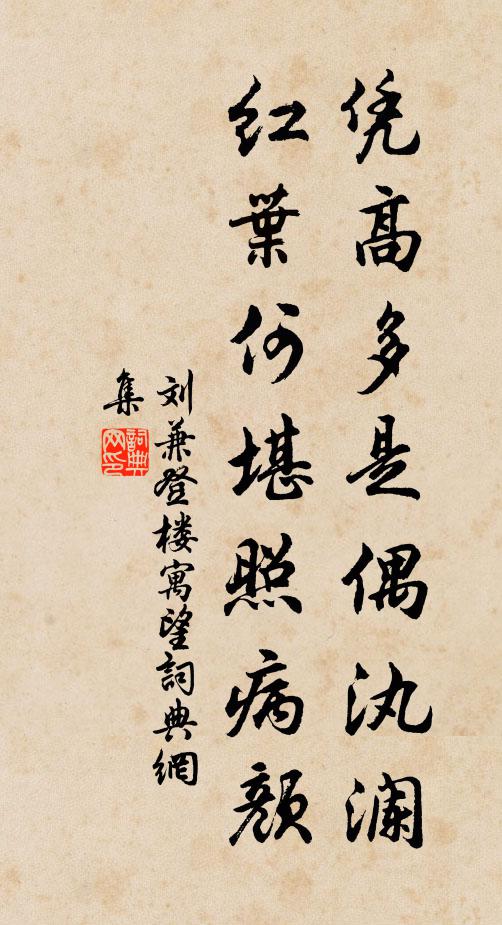 凭高多是偶汍澜
红葉何堪照病颜
刘兼登楼寓望詞典網
集
詞典网印